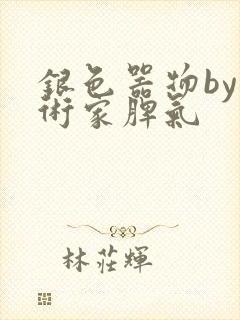 銀色器物by
術家脾氣
林莊輝